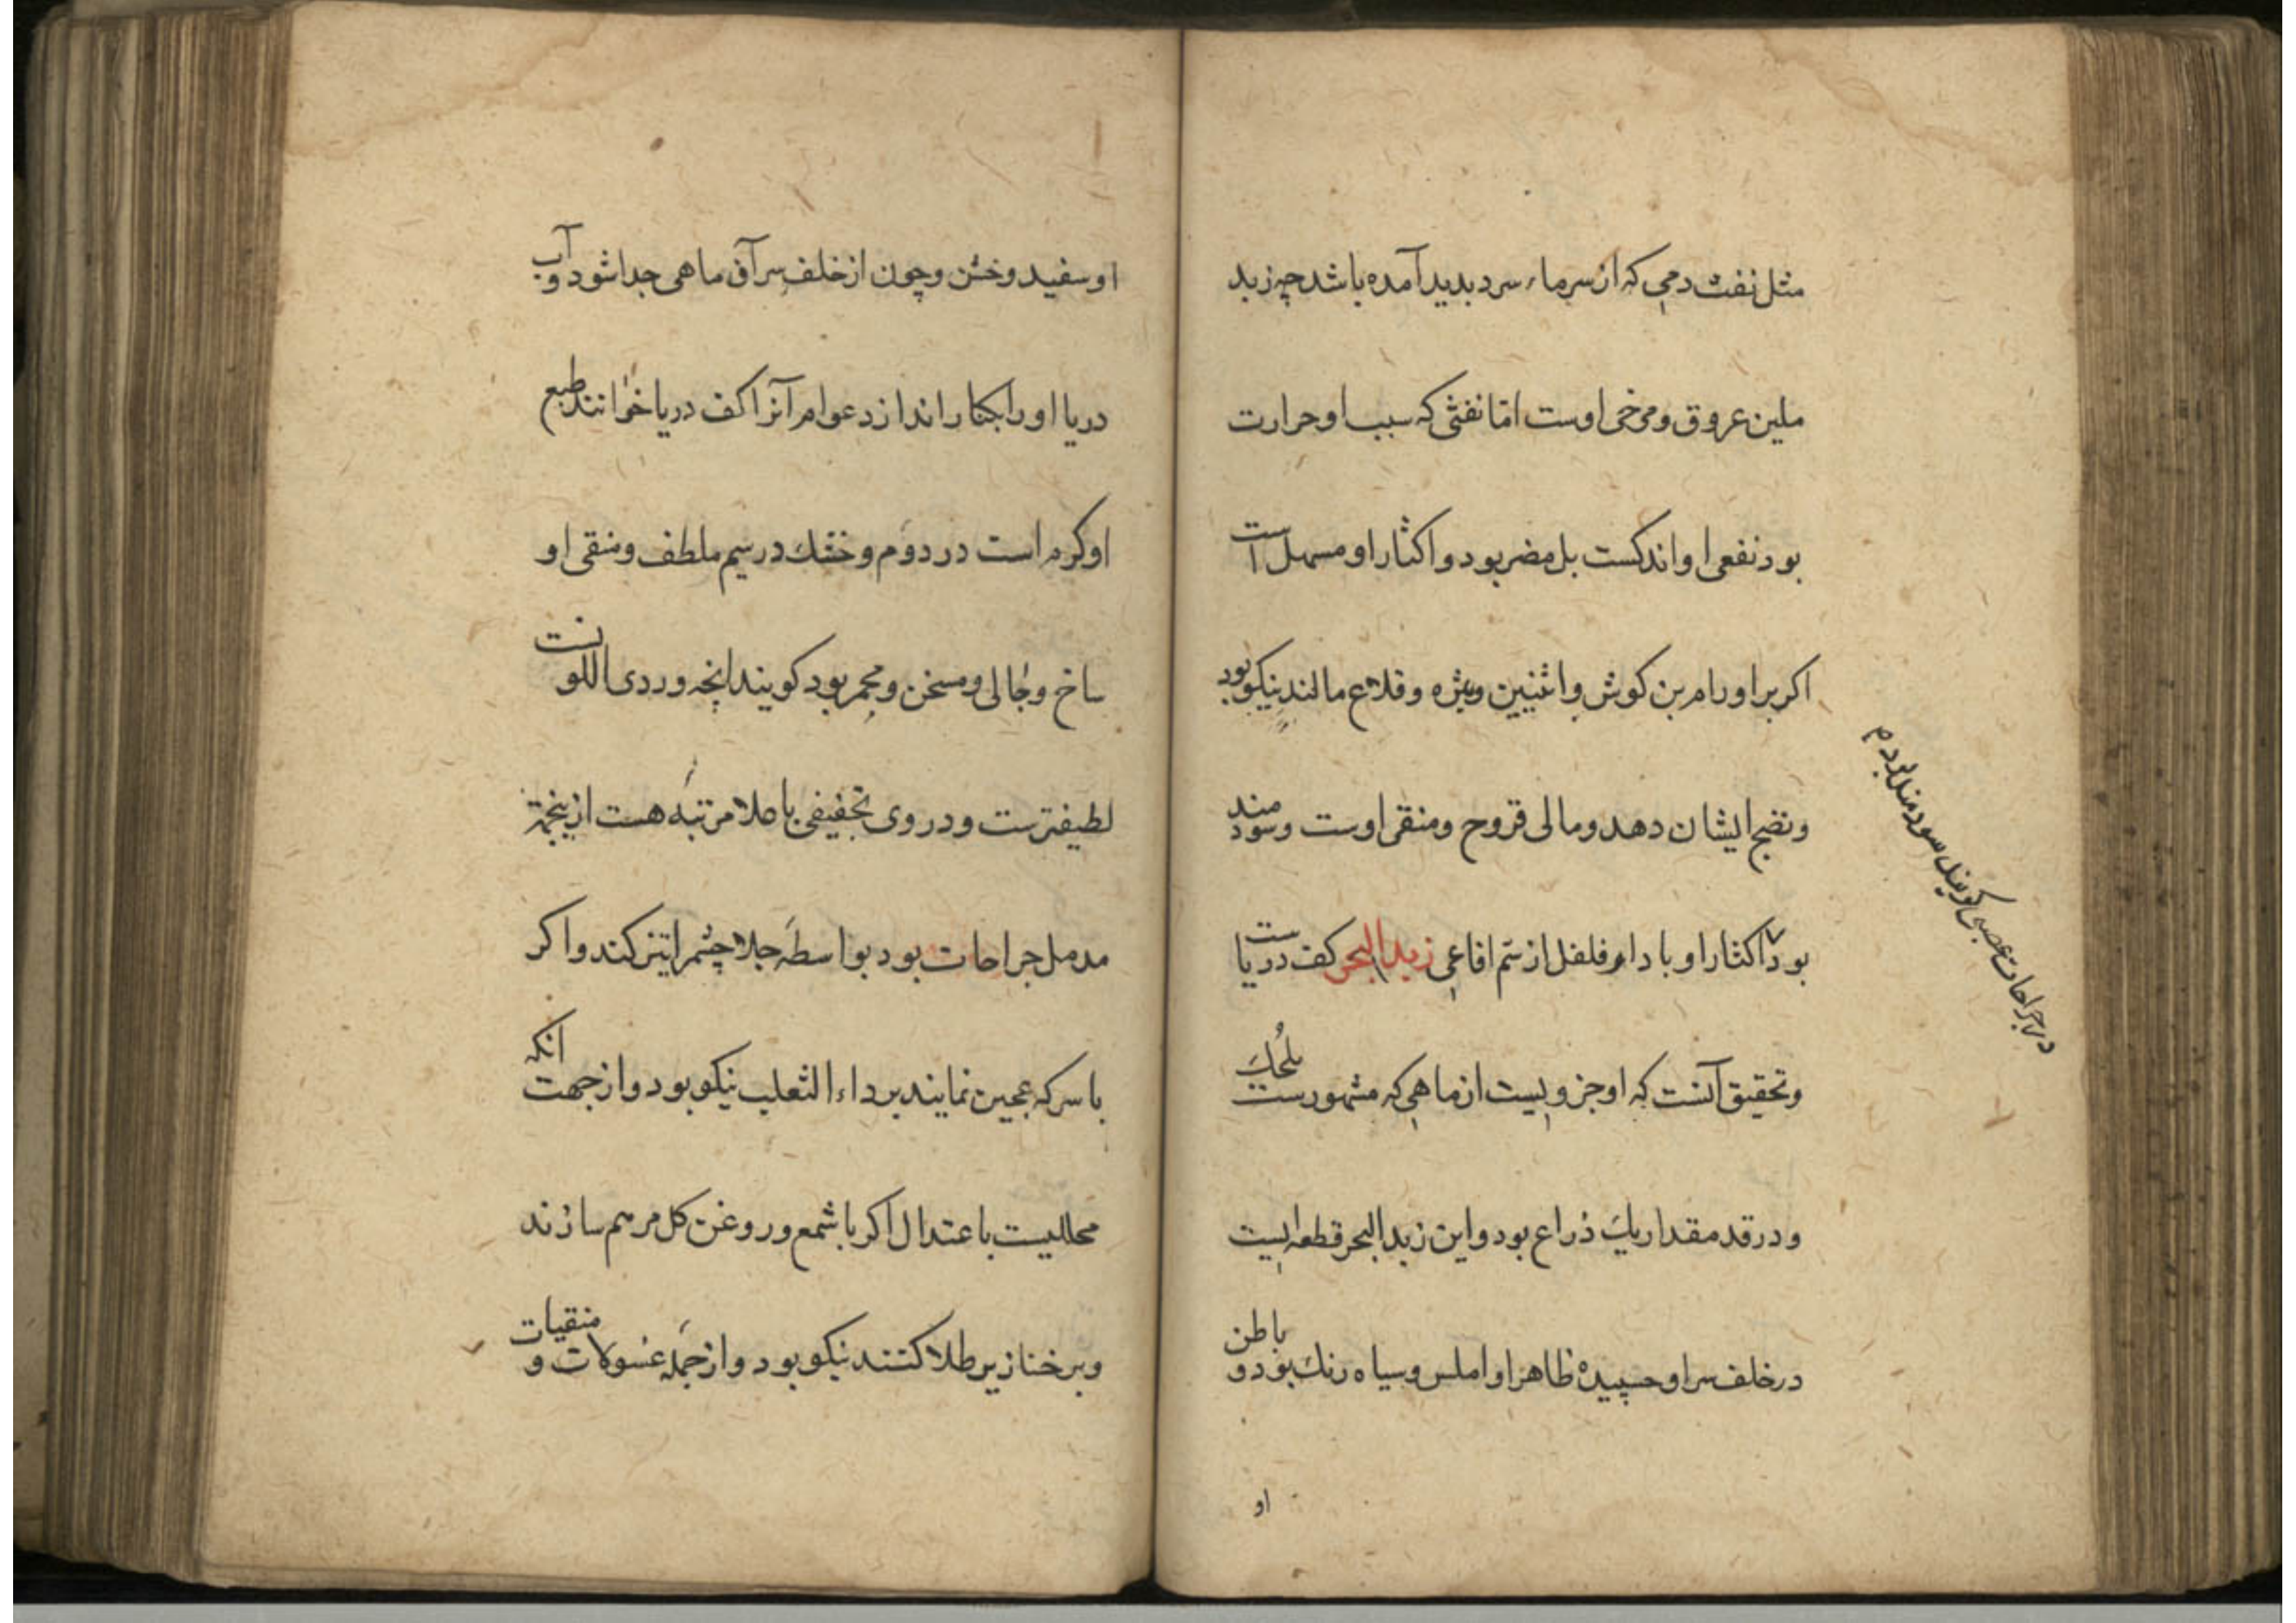 مثل نفث دمی که از سرماء سرد بدید آمده باشد چه زبد
ملین عروق و مرخی اوست امّا نفثی که سبب او حرارت
بود نفعی او اندکست بل مضر بود و اکثار او مسهل است
اکر بر اورام بن کوش و انثیین و بثره و قلاع مالند نیکو بود
و نضج ایشان دهد و مالی قروح و منقی اوست و سودمند
بود اکثار او با دام فلفل از سّم افاعی زبد البحر کف دریاست
و تحقیق آنست که او جزویست از ماهی که مشهورست بلحُک
و در قد مقدار یک ذراع بود و این زبد البحر قطعه ایست
در خلف سر او حسپیده ظاهر او املس و سیاه رنک بود و باطن
او
در جراحات عصبی کویند سودمند بود م
او سفید و خشن و چون از خلف سر آن ماهی جدا شود و آب
دریا او را بکنار اندازد عوام آنرا کف دریا خوانند طبع
او کرم است در دوم و خشک در سیم ملطف و منقی او
ساخ و جالی و مسخن و محمر بود کویند انچه وردی اللونست
لطیفترست و در وی تجفیفی با جلا مرتبه هست ازینجهة
مدمل جراحات بود بواسطهٔ جلا چشم را تیز کند و اکر
با سرکه عجین نمایند بر داء الثعلب نیکو بود و از جهت انکه
محللیست باعتدال اکر با شمع و روغن کل مرهم سازند
و بر خنازیر طلا کنند نیکو بود و از جمله غسولات و منقیات